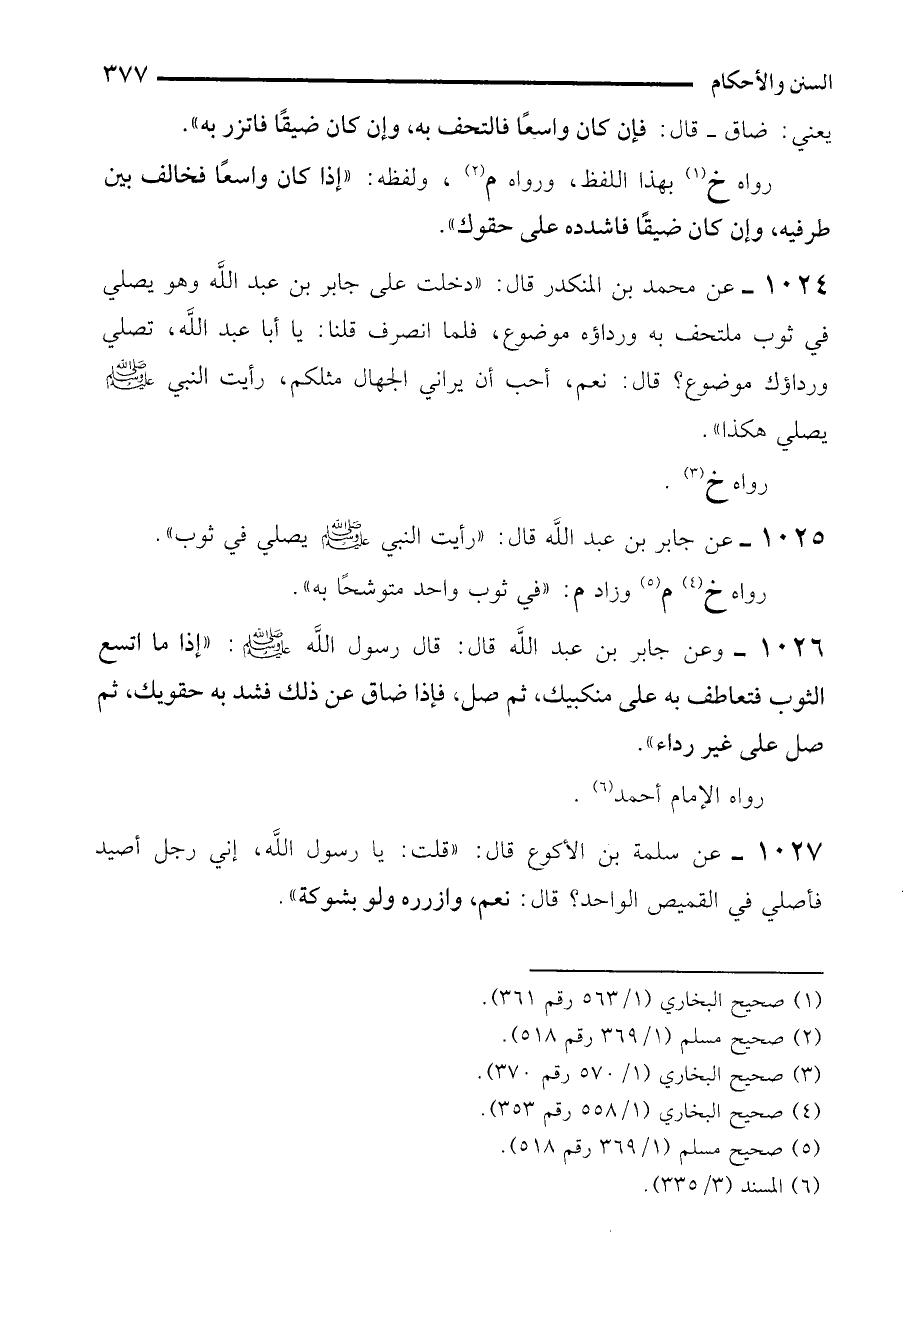 السنن والأحكام ٣٧٧
يعني: ضاق ـ قال: فإن كان واسعًا فالتحف به، وإن كان ضيقًا فاتزر به».
رواه خ(١) بهذا اللفظ، ورواه م(٢) ، ولفظه: «إذا كان واسعًا فخالف بين
طرفيه، وإن كان ضيقًا فاشدده على حقوك».
١٠٢٤ ـ عن محمد بن المنكدر قال: «دخلت على جابر بن عبد اللَّه وهو يصلي
في ثوب ملتحف به ورداؤه موضوع، فلما انصرف قلنا: يا أبا عبد اللَّه، تصلي
ورداؤك موضوع؟ قال: نعم، أحب أن يراني الجهال مثلكم، رأيت النبي ﷺ
يصلي هكذا».
رواه خ(٣) .
١٠٢٥ ـ عن جابر بن عبد اللَّه قال: «رأيت النبي ﷺ يصلي في ثوب».
رواه خ(٤) م(٥) وزاد م: «في ثوب واحد متوشحًا به».
١٠٢٦ ـ وعن جابر بن عبد اللَّه قال: قال رسول اللَّه ﷺ : «إذا ما اتسع
الثوب فتعاطف به على منكبيك، ثم صل، فإذا ضاق عن ذلك فشد به حقويك، ثم
صل على غير رداء».
رواه الإمام أحمد(٦) .
١٠٢٧ ـ عن سلمة بن الأكوع قال: «قلت: يا رسول اللَّه، إني رجل أصيد
فأصلي في القميص الواحد؟ قال: نعم، وازرره ولو بشوكة».
(١) صحيح البخاري (١/ ٥٦٣ رقم ٣٦١).
(٢) صحيح مسلم (١/ ٣٦٩ رقم ٥١٨).
(٣) صحيح البخاري (١/ ٥٧٠ رقم ٣٧٠).
(٤) صحيح البخاري (١/ ٥٥٨ رقم ٣٥٣).
(٥) صحيح مسلم (١/ ٣٦٩ رقم ٥١٨).
(٦) المسند (٣/ ٣٣٥).